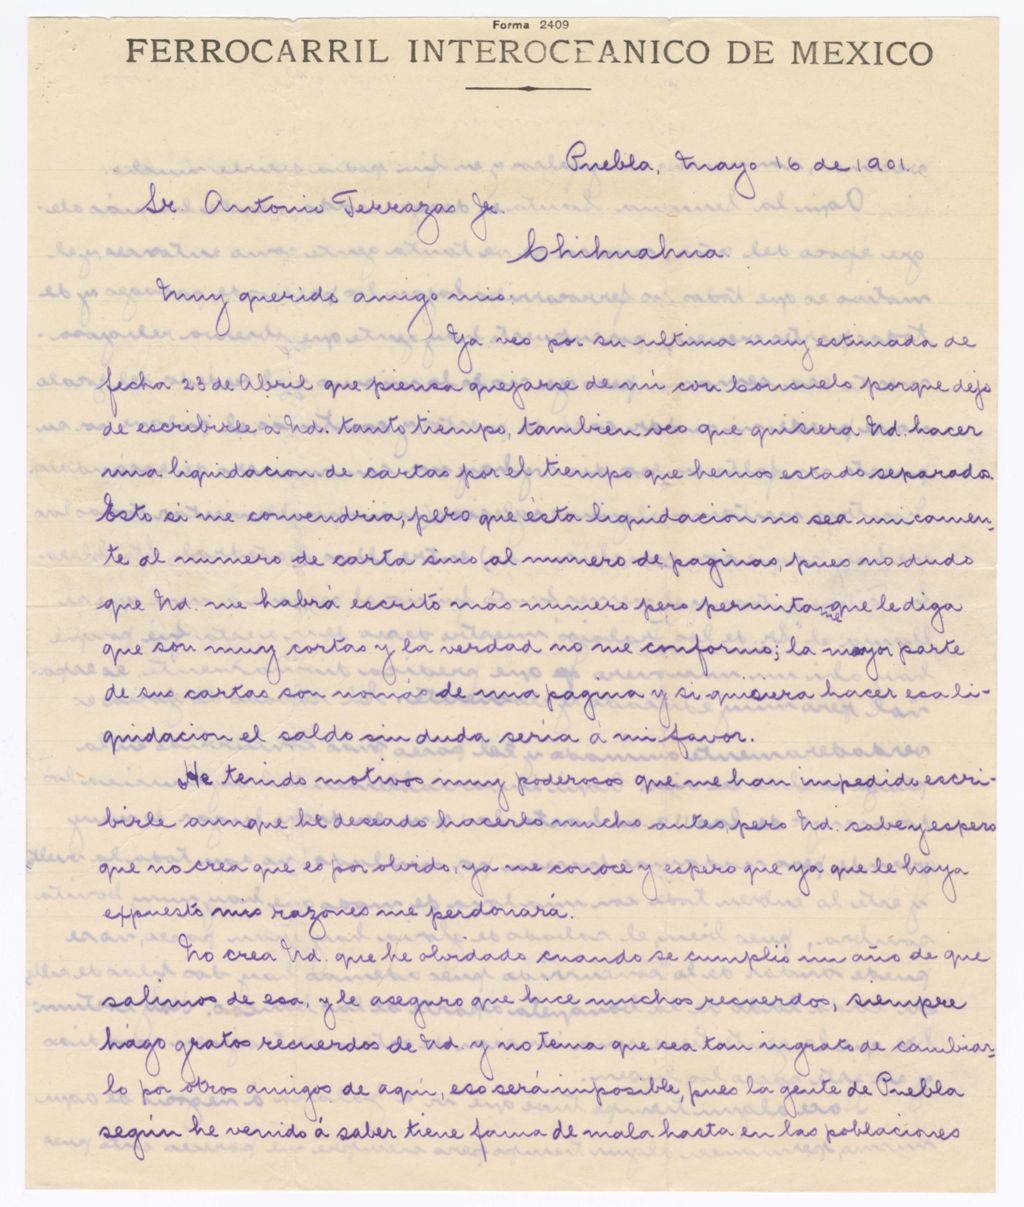 Forma 2409
FERROCARRIL INTEROCEANICO DE MEXICO
Puebla, Mayo 16 de 1901.
Sr. Antonio Terrazas Jr.
Chihuahua.
Muy querido amigo mio:
Ya veo por su ultima muy estimada de
fecha 23 de Abril que piensa quejarse de mí con Consuelo porque dejo
de escribirle a Ud. tanto tiempo, tambien veo que quisiera Ud. hacer
una liquidacion de cartas por el tiempo que hemos estado separados.
Esto si me convendria, pero que ésta liquidacion no sea unicamen-
te al numero de carta sino al numero de paginas, pues no dudo
que Ud. me habrá escrito mas numero pero permitame que le diga
que son muy cortas y la verdad no me conformo; la mayor parte
de sus cartas son nomás de una página y si quisiera hacer esa li-
quidacion el saldo sin duda sería á mi favor.
He tenido motivos muy poderosos que me han impedido escri-
birle aunque he deseado hacerlo mucho antes, pero Ud. sabe y espero
que no crea que es por olvido, ya me conoce y espero que ya que le haya
expuesto mis razones me perdonará.
No crea Ud. que he olvidado cuando se cumplió un año de que
salimos de esa, y le aseguro que hice muchos recuerdos, siempre
hago gratos recuerdos de Ud. y no tema que sea tan ingrato de cambiar-
lo por otros amigos de aquí, eso será imposible, pues la gente de Puebla
según he venido á saber tiene fama de mala hasta en las poblaciones